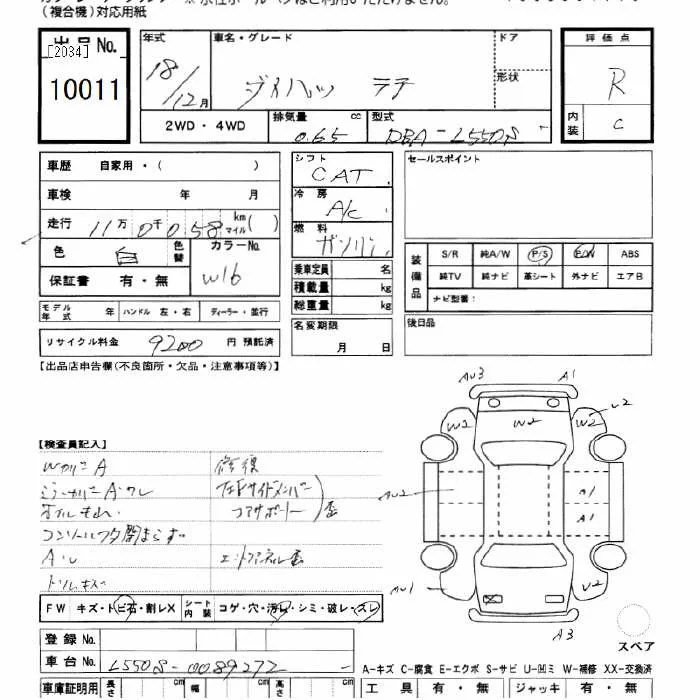 (複合機)対応用紙
出品No.
[2034]
10011
年式 車名・グレード ドア
18/12月 ダイハツ ラテ 形状
評価点
R
内装 C
2WD・4WD 排気量 cc 型式
0.65 DBA-L550S
車歴 自家用・( )
車検 年 月
走行 11万0千058 km マイル( )
色 白 色替 カラーNo.
W16
保証書 有・無
モデル年式 年 ハンドル 左・右 ディーラー・並行
リサイクル料金 9200 円 預託済
シフト
CAT
冷房
A/c
燃料
ガソリン
乗車定員 名
積載量 kg
総重量 kg
名変期限
月 日
セールスポイント
装備品
S/R 純A/W P/S P/W ABS
純TV 純ナビ 革シート 外ナビ エアB
ナビ型番:
後日品
【出品店申告欄(不良箇所・欠品・注意事項等)】
【検査員記入】
WカバーA 修復
コアサポート 歪
コンソールフタ閉まらず
FW キズ・トビ石・割レX シート内装 コゲ・穴・汚レ・シミ・破レ・スレ
登録No.
車台No. L550S-0089272
車庫証明用 長さ cm 幅 cm 高さ cm
AU3 A1
U2
W2 W2 W2
AU2
A1
A1
AU1 U2
X
A3
スペア
A-キズ C-腐食 E-エクボ S-サビ U-凹ミ W-補修 XX-交換済
工具 有・無 ジャッキ 有・無